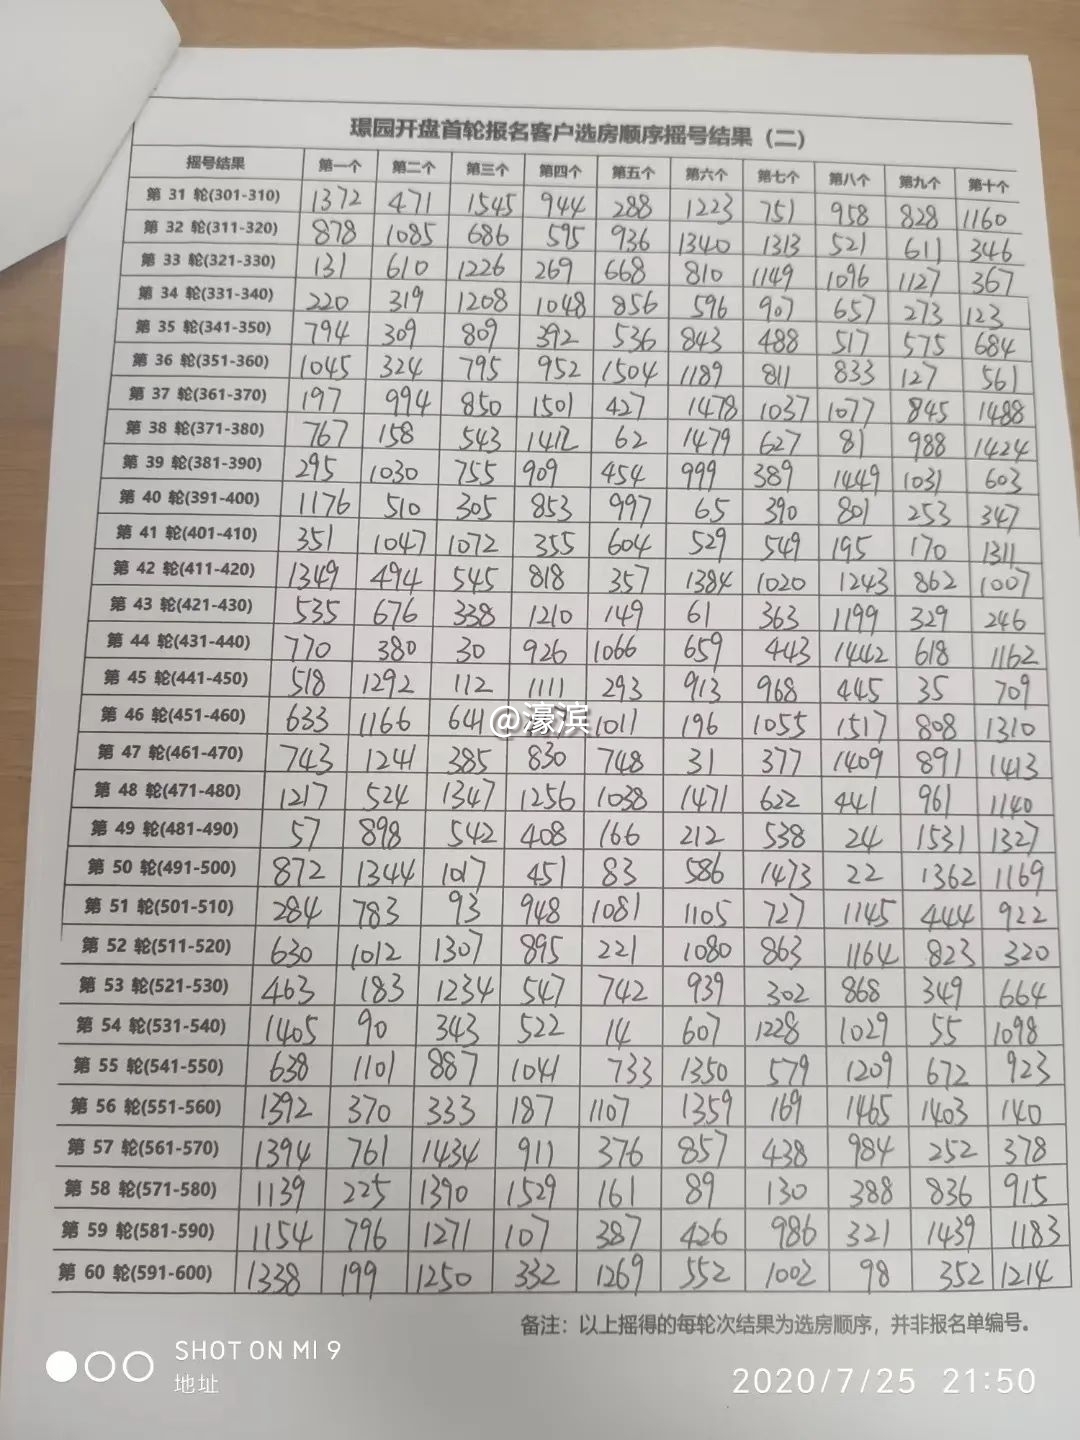 璟园开盘首轮报名客户选房顺序摇号结果（二）
摇号结果 第一个 第二个 第三个 第四个 第五个 第六个 第七个 第八个 第九个 第十个
第 31 轮(301-310) 1372 471 1545 944 288 1223 751 958 828 1160
第 32 轮(311-320) 878 1085 686 595 936 1340 1313 521 611 346
第 33 轮(321-330) 131 610 1226 269 668 810 1149 1096 1127 367
第 34 轮(331-340) 220 319 1208 1048 856 596 907 657 273 123
第 35 轮(341-350) 794 309 809 392 536 843 488 517 575 684
第 36 轮(351-360) 1045 324 795 952 1504 1189 811 833 127 561
第 37 轮(361-370) 197 994 850 1501 427 1478 1037 1077 845 1488
第 38 轮(371-380) 767 158 543 1412 62 1479 627 81 988 1424
第 39 轮(381-390) 295 1030 755 909 454 999 389 1449 1031 603
第 40 轮(391-400) 1176 510 305 853 997 65 390 801 253 347
第 41 轮(401-410) 351 1047 1072 355 604 529 549 195 170 1311
第 42 轮(411-420) 1349 494 545 818 357 1384 1020 1243 862 1007
第 43 轮(421-430) 535 676 338 1210 149 61 363 1199 329 246
第 44 轮(431-440) 770 380 30 926 1066 659 443 1442 618 1162
第 45 轮(441-450) 518 1292 112 1111 293 913 968 445 35 709
第 46 轮(451-460) 633 1166 641 1011 196 1055 1517 808 1310
@濠滨
第 47 轮(461-470) 743 1241 385 830 748 31 377 1409 891 1413
第 48 轮(471-480) 1217 524 1347 1256 1038 1471 622 441 961 1140
第 49 轮(481-490) 57 898 542 408 166 212 538 24 1531 1327
第 50 轮(491-500) 872 1344 1017 451 83 586 1473 22 1362 1169
第 51 轮(501-510) 284 783 93 948 1081 1105 727 1145 444 922
第 52 轮(511-520) 630 1012 1307 895 221 1080 863 1164 823 320
第 53 轮(521-530) 463 183 1234 547 742 939 302 868 349 664
第 54 轮(531-540) 1405 90 343 522 14 607 1228 1029 55 1098
第 55 轮(541-550) 638 1101 887 1041 733 1350 579 1209 672 923
第 56 轮(551-560) 1392 370 333 187 1107 1359 169 1465 1403 140
第 57 轮(561-570) 1394 761 1434 911 376 857 438 984 252 378
第 58 轮(571-580) 1139 225 1390 1529 161 89 130 388 836 915
第 59 轮(581-590) 1154 796 1271 107 387 426 986 321 1439 1183
第 60 轮(591-600) 1338 199 1250 332 1269 552 1002 98 352 1214
备注：以上摇得的每轮次结果为选房顺序，并非报名单编号。
SHOT ON MI 9
地址
2020/7/25 21:50